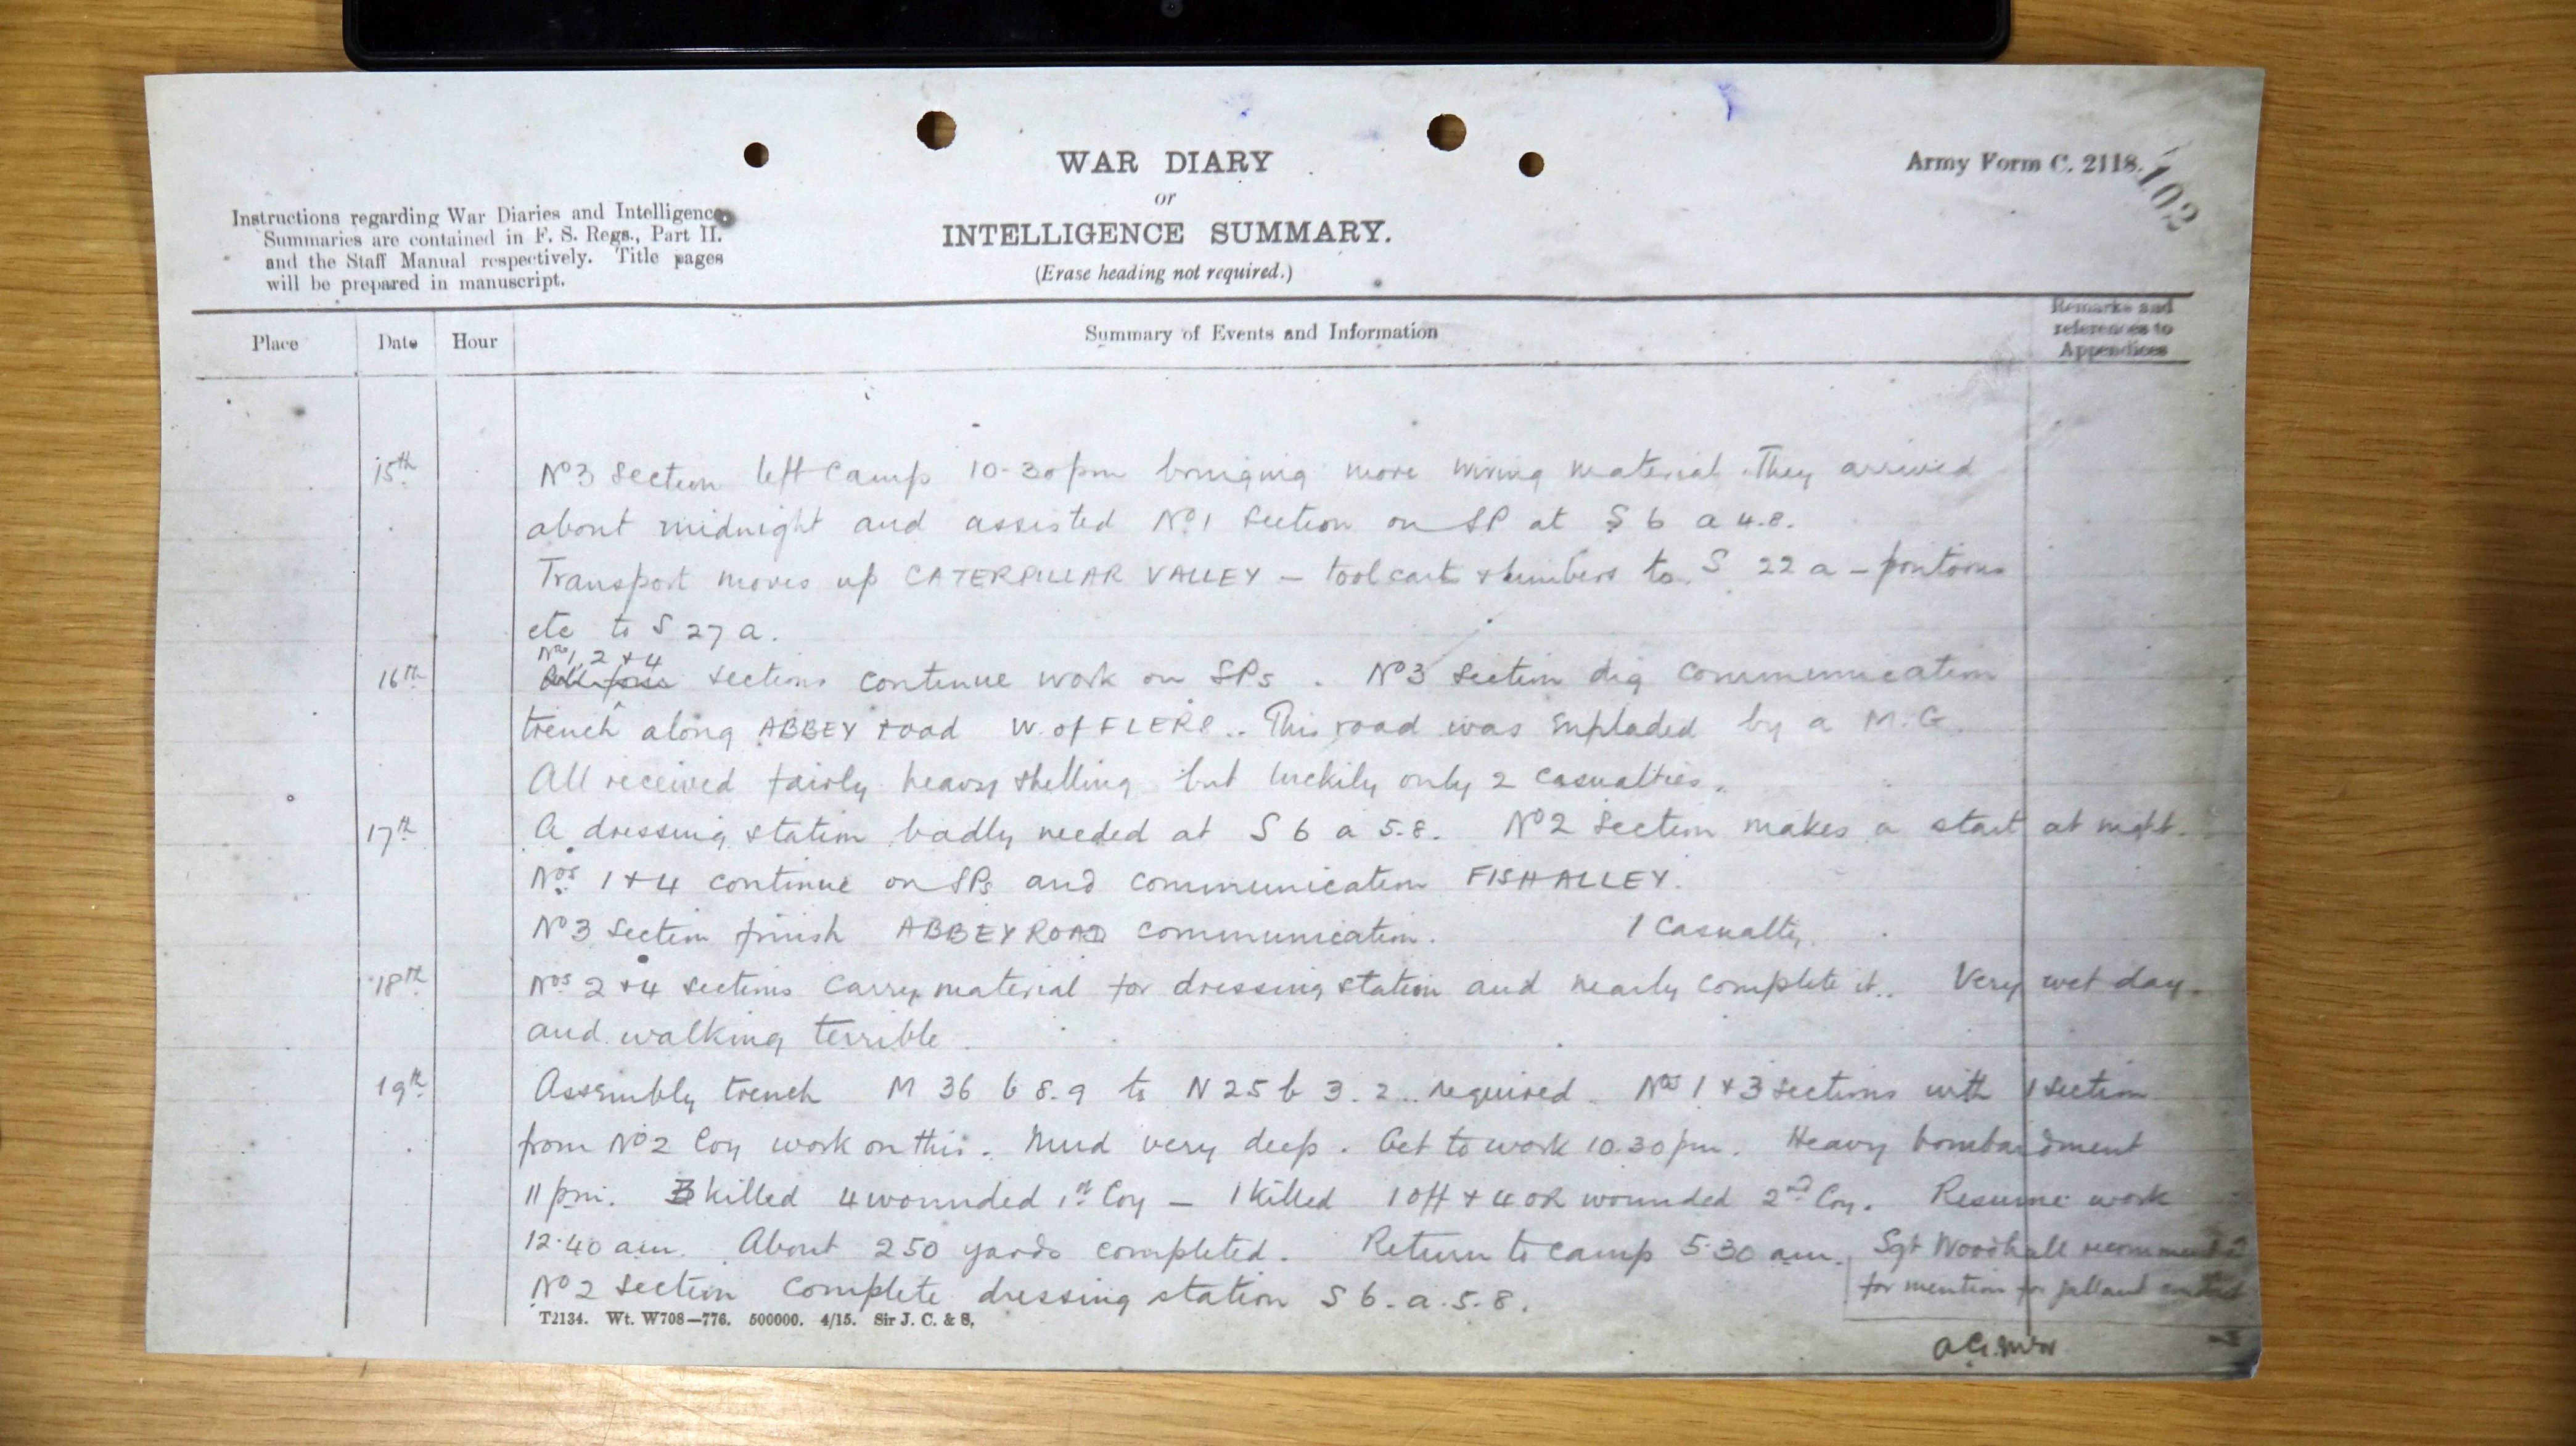 WAR DIARY
or
INTELLIGENCE SUMMARY.
(Erase heading not required.)
Army Form C. 2118.
102
Instructions regarding War Diaries and Intelligence
Summaries are contained in F. S. Regs., Part II.
and the Staff Manual respectively. Title pages
will be prepared in manuscript.
Place Date Hour Summary of Events and Information Remarks and references to Appendices
15th No 3 Section left Camp 10-30 pm bringing more wiring material. They arrived
about midnight and assisted No 1 Section on SP at S 6 a 4.8.
Transport moves up CATERPILLAR VALLEY – tool cart & limbers to S 22 a – pontoons
etc to S 27 a.
Nos 1, 2 & 4
16th All four sections continue work on SPs. No 3 Section dig communication
trench along ABBEY road W. of FLERS. This road was enfiladed by a M.G.
All received fairly heavy shelling but luckily only 2 casualties.
17th A dressing station badly needed at S 6 a 5.8. No 2 Section makes a start at night.
Nos 1 & 4 continue on SPs and communication FISH ALLEY.
No 3 Section finish ABBEY ROAD communication. 1 Casualty.
18th Nos 2 & 4 sections carry material for dressing station and nearly complete it. Very wet day.
and walking terrible.
19th Assembly trench M 36 b 8.9 to N 25 b 3.2 required. Nos 1 & 3 sections with 1 section
from No 2 Coy work on this. Mud very deep. Get to work 10.30 pm. Heavy bombardment
11 pm. 3 killed 4 wounded 1st Coy – 1 killed 1 off & 4 OR wounded 2nd Coy. Resume work
12.40 am. About 250 yards completed. Return to camp 5.30 am. Sgt Woodhall recommended
for mention for gallant conduct
No 2 section complete dressing station S 6. a. 5.8.
T2134. Wt. W708—776. 500000. 4/15. Sir J. C. & S.